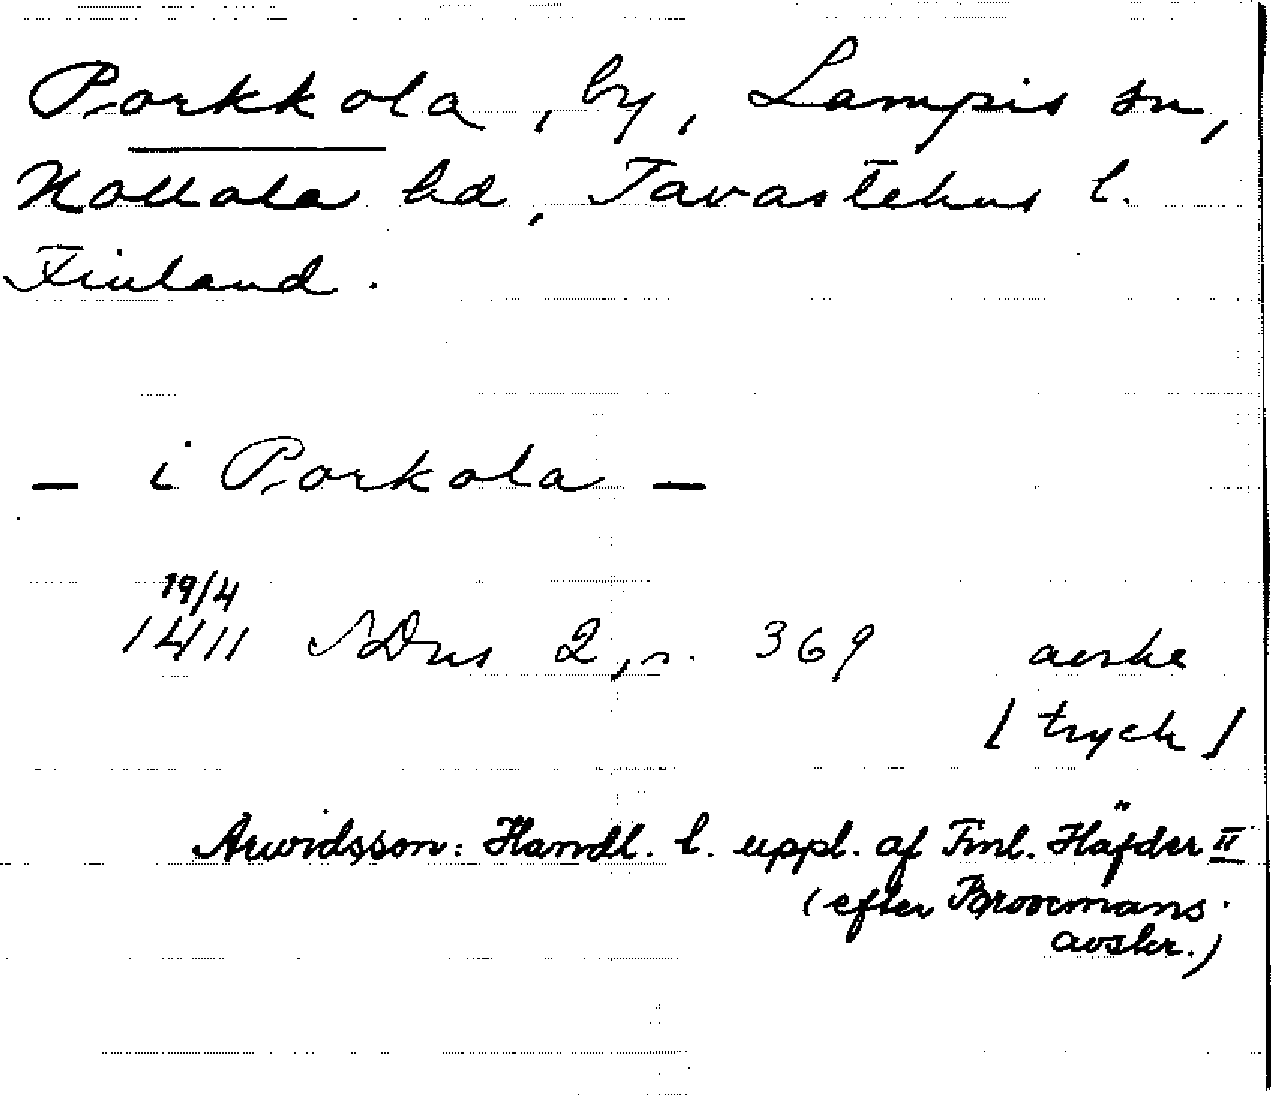 Porkkola, by, Lampis sn,
Hollola hd, Tavastehus l.
Finland.
- i Porkola -
19/4
1411 SDns 2, s. 369 avskr
[tryck]
Arwidsson: Handl. t. uppl. af Finl. Häfder II
(efter Broocmans
avskr.)